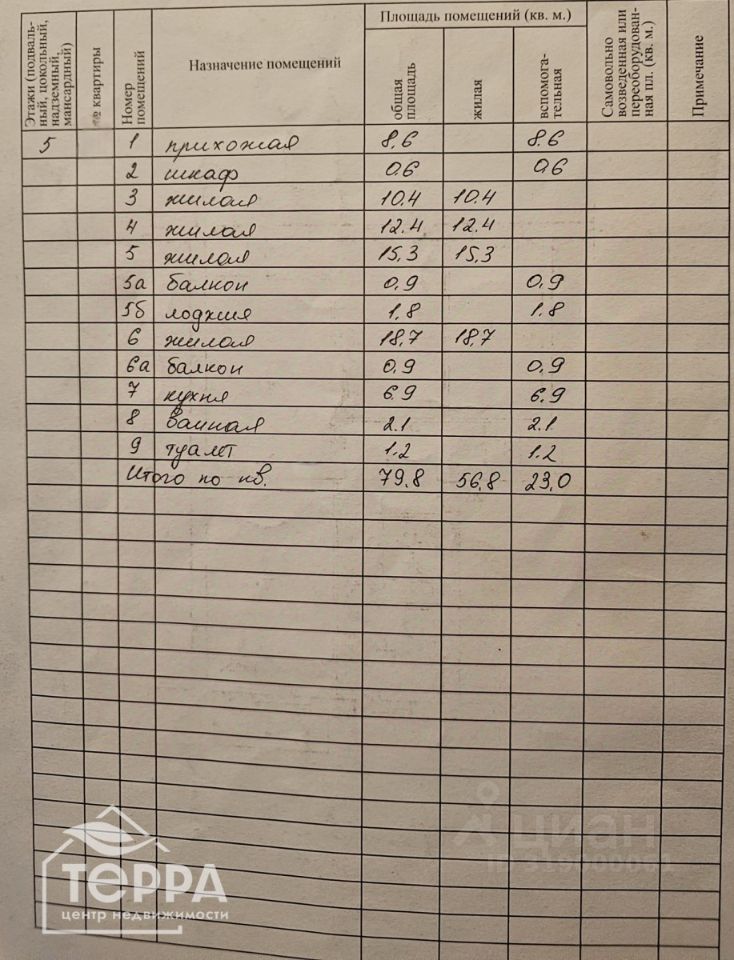 Этажи (подваль-
ный, цокольный,
надземный,
мансардный)
№ квартиры
Номер
помещений
Назначение помещений
Площадь помещений (кв. м.)
общая
площадь
жилая
вспомога-
тельная
Самовольно
возведенная или
переоборудован-
ная пл. (кв. м.)
Примечание
5 1 прихожая 8,6 8.6
2 шкаф 0,6 0,6
3 жилая 10.4 10.4
4 жилая 12.4 12.4
5 жилая 15,3 15,3
5а балкон 0,9 0,9
5б лоджия 1,8 1,8
6 жилая 18,7 18,7
6а балкон 0,9 0,9
7 кухня 6.9 6.9
8 ванная 2.1 2.1
9 туалет 1.2 1.2
Итого по кв. 79.8 56,8 23,0
циан
ТЕРРА
центр недвижимости